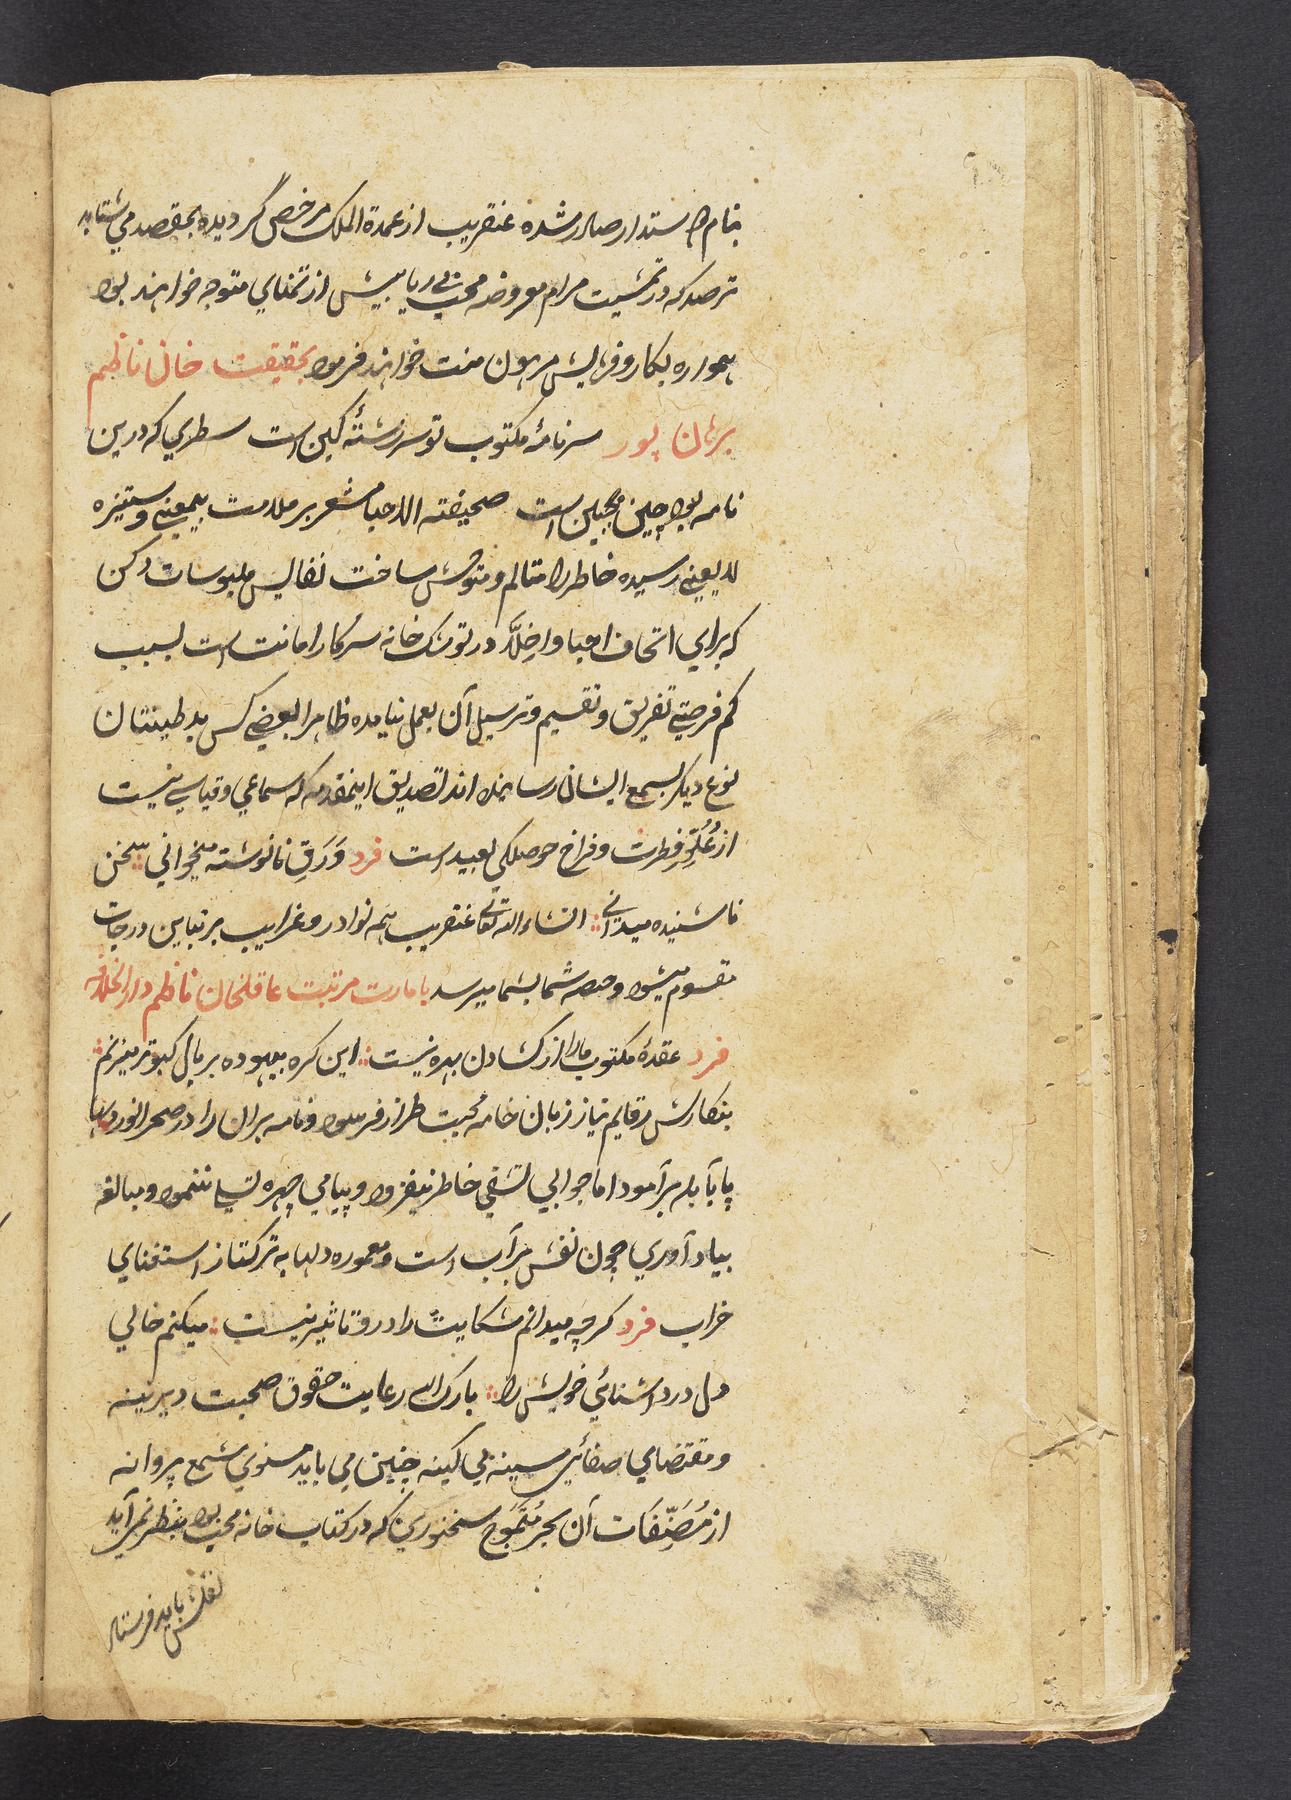 بنام جاستدار صادر شده عنقریب از عمدة الملک مرخص گردیده بمقصد می شتابد
ترصد که در تمشیت مرام معروضه محب بی ریا بیش از تمنای متوجه خواهند بود
همواره بکار و فرمایش مرهون منت خواهند فرمود بحقیقت خان ناظم
برهان پور سرنامهٔ مکتوب تو سررشتهٔ کین است سطری که درین
نامه بود چین جبین است صحیفته الاحبا مشعر بر ملامت بیمعنی و ستیزه
لایعنی رسیده خاطر را متالم و متوحش ساخت نفایس ملبوسات دکن
که برای اتحاف احبا و اخلّا در توشک خانه سرکار امانت است بسبب
کم فرصتی تفریق و تقسیم و ترسیل آن بعمل نیامده ظاهرا بعضی کس بدطینتان
نوع دیگر بسمع ایشان رسانیده اند تصدیق اینمقدمه که سماعی و قیاسی نیست
از عُلُوّ فطرت و فراخ حوصلگی بعید است فرد وَرَقِ نانوشته میخوانی سخن
ناشنیده میدانی انشاء الله تعالی عنقریب همه نوادر و غرایب بر تباین درجات
مقسوم میشود و حصه شما بشما میرسد بامارت مرتبت عاقلخان ناظم دار الخلافه
فرد عقدهٔ مکتوب ما را از کشادن بهره نیست این کره بیهوده بر بال کبوتر میزنم
بنکارش رقایم نیاز زبان خامه محبت طراز فرسود و نامه بران را در صحرا نوردیها
پا بآبله برآمود اما جوابی تشفی خاطر نیفزود و پیامی چهره تسلی ننمود و مبالغه
بیاد آوری چون نقش بر آب است و معموره دلها به ترکتاز استغنای
خراب فرد کرچه میدانم شکایت را درو تاثیر نیست میکنم خالی
دل درد آشنائی خویش را بارک الله رعایت حقوق صحبت دیرینه
و مقتضای صفائی سینه بی کینه چنین می باید مثنوی شمع پروانه
از مُصَنِّفَات آن بحر مُتَمَوِّج سخنوری که در کتاب خانه محب بود بنظر نمی آید
نقلش باید فرستاد